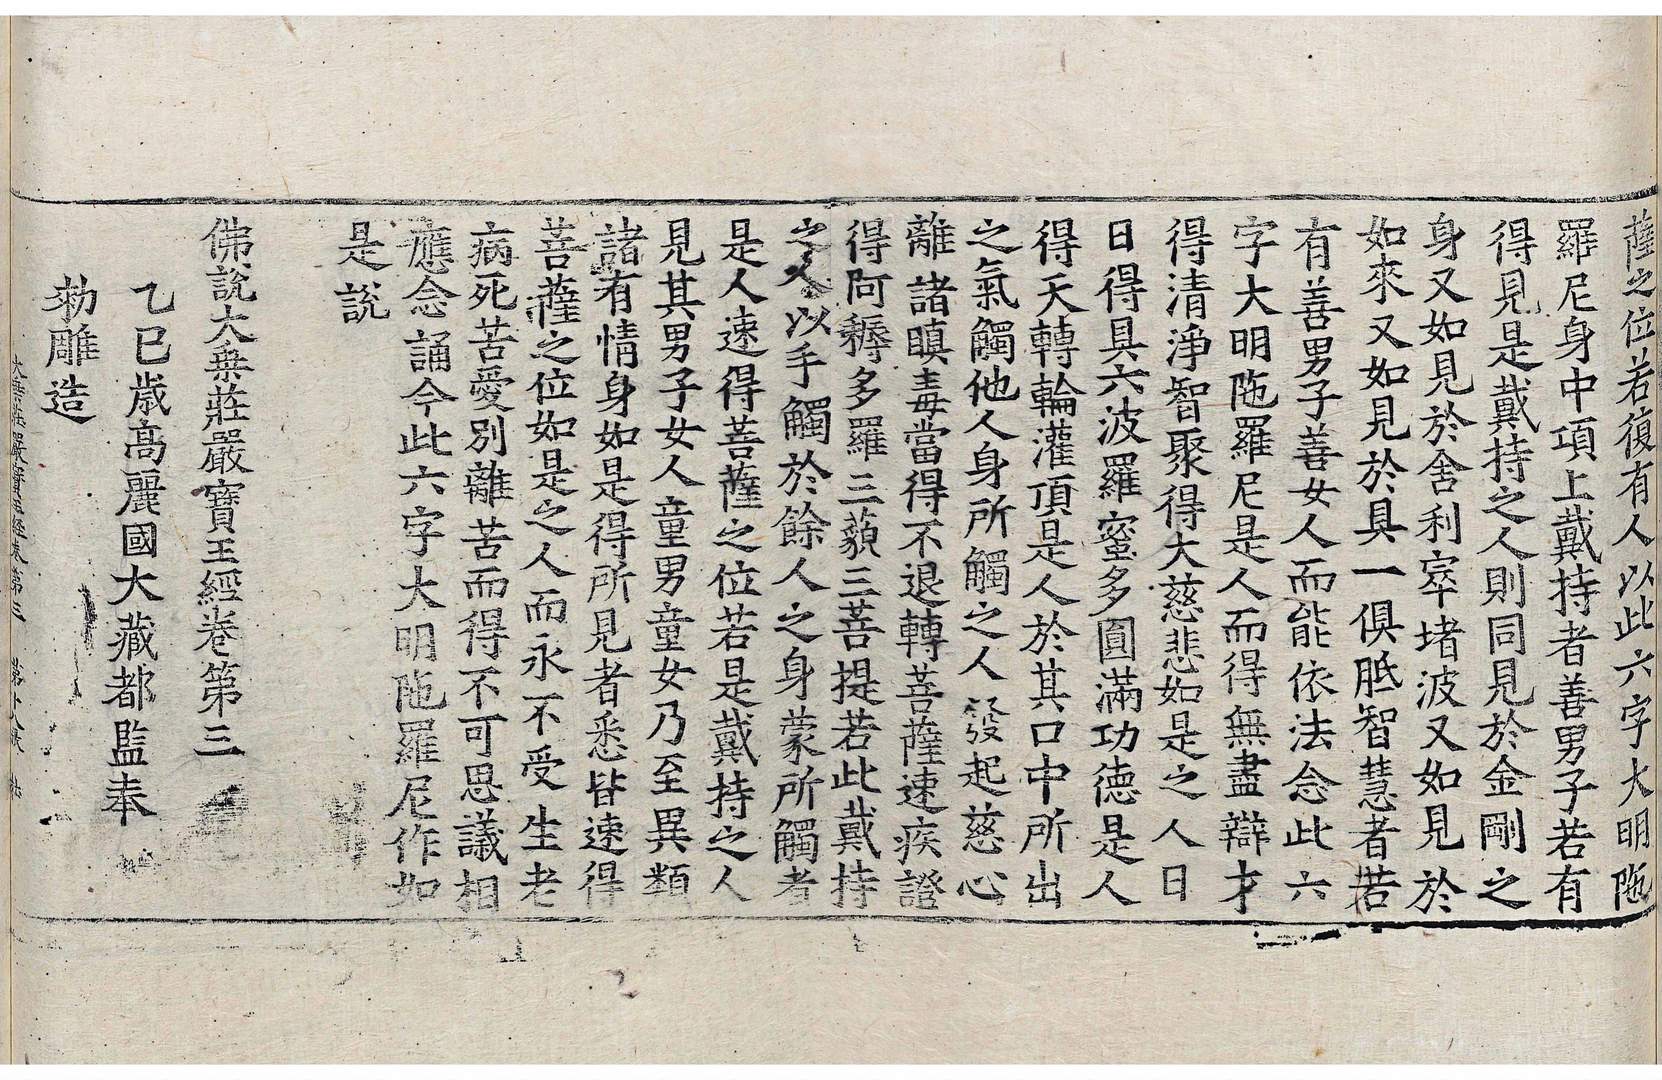 薩之位若復有人以此六字大明陁
羅尼身中項上戴持者善男子若有
得見是戴持之人則同見於金剛之
身又如見於舍利窣堵波又如見於
如來又如見於具一俱胝智慧者若
有善男子善女人而能依法念此六
字大明陁羅尼是人而得無盡辯才
得清淨智聚得大慈悲如是之人日
日得具六波羅蜜多圓滿功德是人
得天轉輪灌頂是人於其口中所出
之氣觸他人身所觸之人發起慈心
離諸瞋毒當得不退轉菩薩速疾證
得阿耨多羅三藐三菩提若此戴持
之人以手觸於餘人之身蒙所觸者
是人速得菩薩之位若是戴持之人
見其男子女人童男童女乃至異類
諸有情身如是得所見者悉皆速得
菩薩之位如是之人而永不受生老
病死苦愛別離苦而得不可思議相
應念誦今此六字大明陁羅尼作如
是說
佛說大乗莊嚴寶王經卷第三
乙巳歲高麗國大藏都監奉
勑雕造
大乗莊嚴寶王經卷第三 第十八張